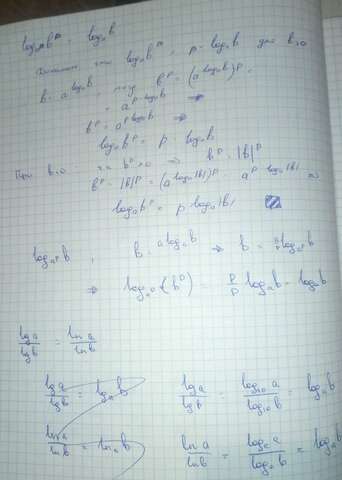 log_{a^p} b^p = log_a b
что log_a b^p = p · log_a b для b>0
b = a^{log_a b} b^p = (a^{log_a b})^p =
= a^{p · log_a b} ⇒
b^p = a^{p log_a b} ⇒
log_a b^p = p · log_a b
При b<0 b^p > 0 ⇒ b^p = |b|^p
b^p = |b|^p = (a^{log_a |b|})^p = a^{p · log_a |b|} ⇒
log_a b^p = p log_a |b|
log_{a^p} b , b = a^{log_a b} ⇒ b =
⇒ log_{a^p} (b^p) = p/p log_a b = log_a b
lg a / lg b = ln a / ln b
lg a / lg b = log_a b lg a / lg b = log_{10} a / log_{10} b = log_a b
ln a / ln b = ln_a b ln a / ln b = log_e a / log_e b = log_a b